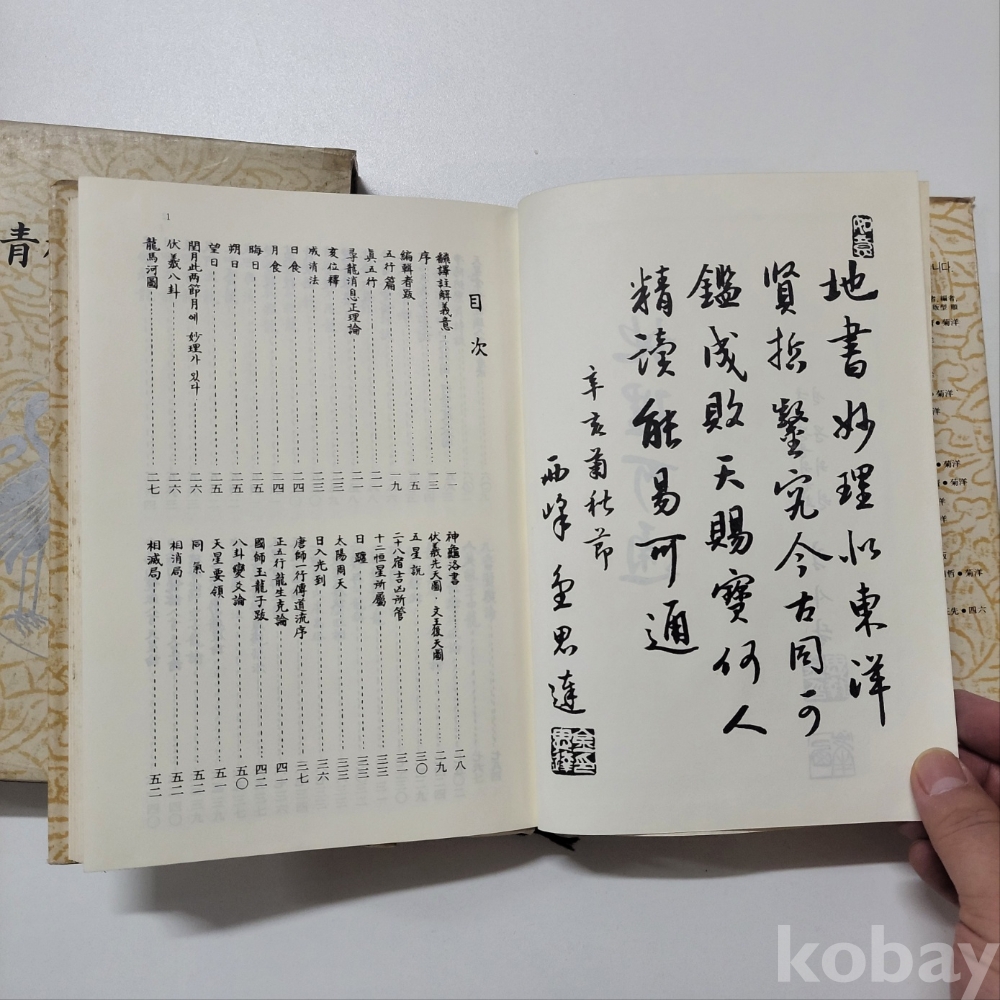 如意
地書妙理似東洋
賢哲鑿究今古同可
鑑成敗天賜寶何人
精讀能易可通
辛亥菊秋節
西峰 金思達
目次
飜譯註解義意 一一
序 一三
編輯者跋 一五
五行篇 一九
眞五行 二一
尋龍消息正理論 二二
亥位釋 二三
成消法 二三
日食 二四
月食 二四
晦日 二五
朔日 二五
望日 二五
閏月此两節月에 妙理가 있다 二六
伏羲八卦 二六
龍馬河圖 二七
神龜洛書 二八
伏羲先天圖・文王後天圖 二九
五星說 三〇
二十八宿吉凶所管 三一
十二恒星所屬 三三
日躔 三三
太陽周天 三三
日入光到 三六
唐師一行傳道流序 三七
正五行龍生克論 四一
國師玉龍子跋 四二
八卦變爻論 五〇
天星要領 五一
同氣 五二
相消局 五二
相滅局 五二
1
靑
kobay